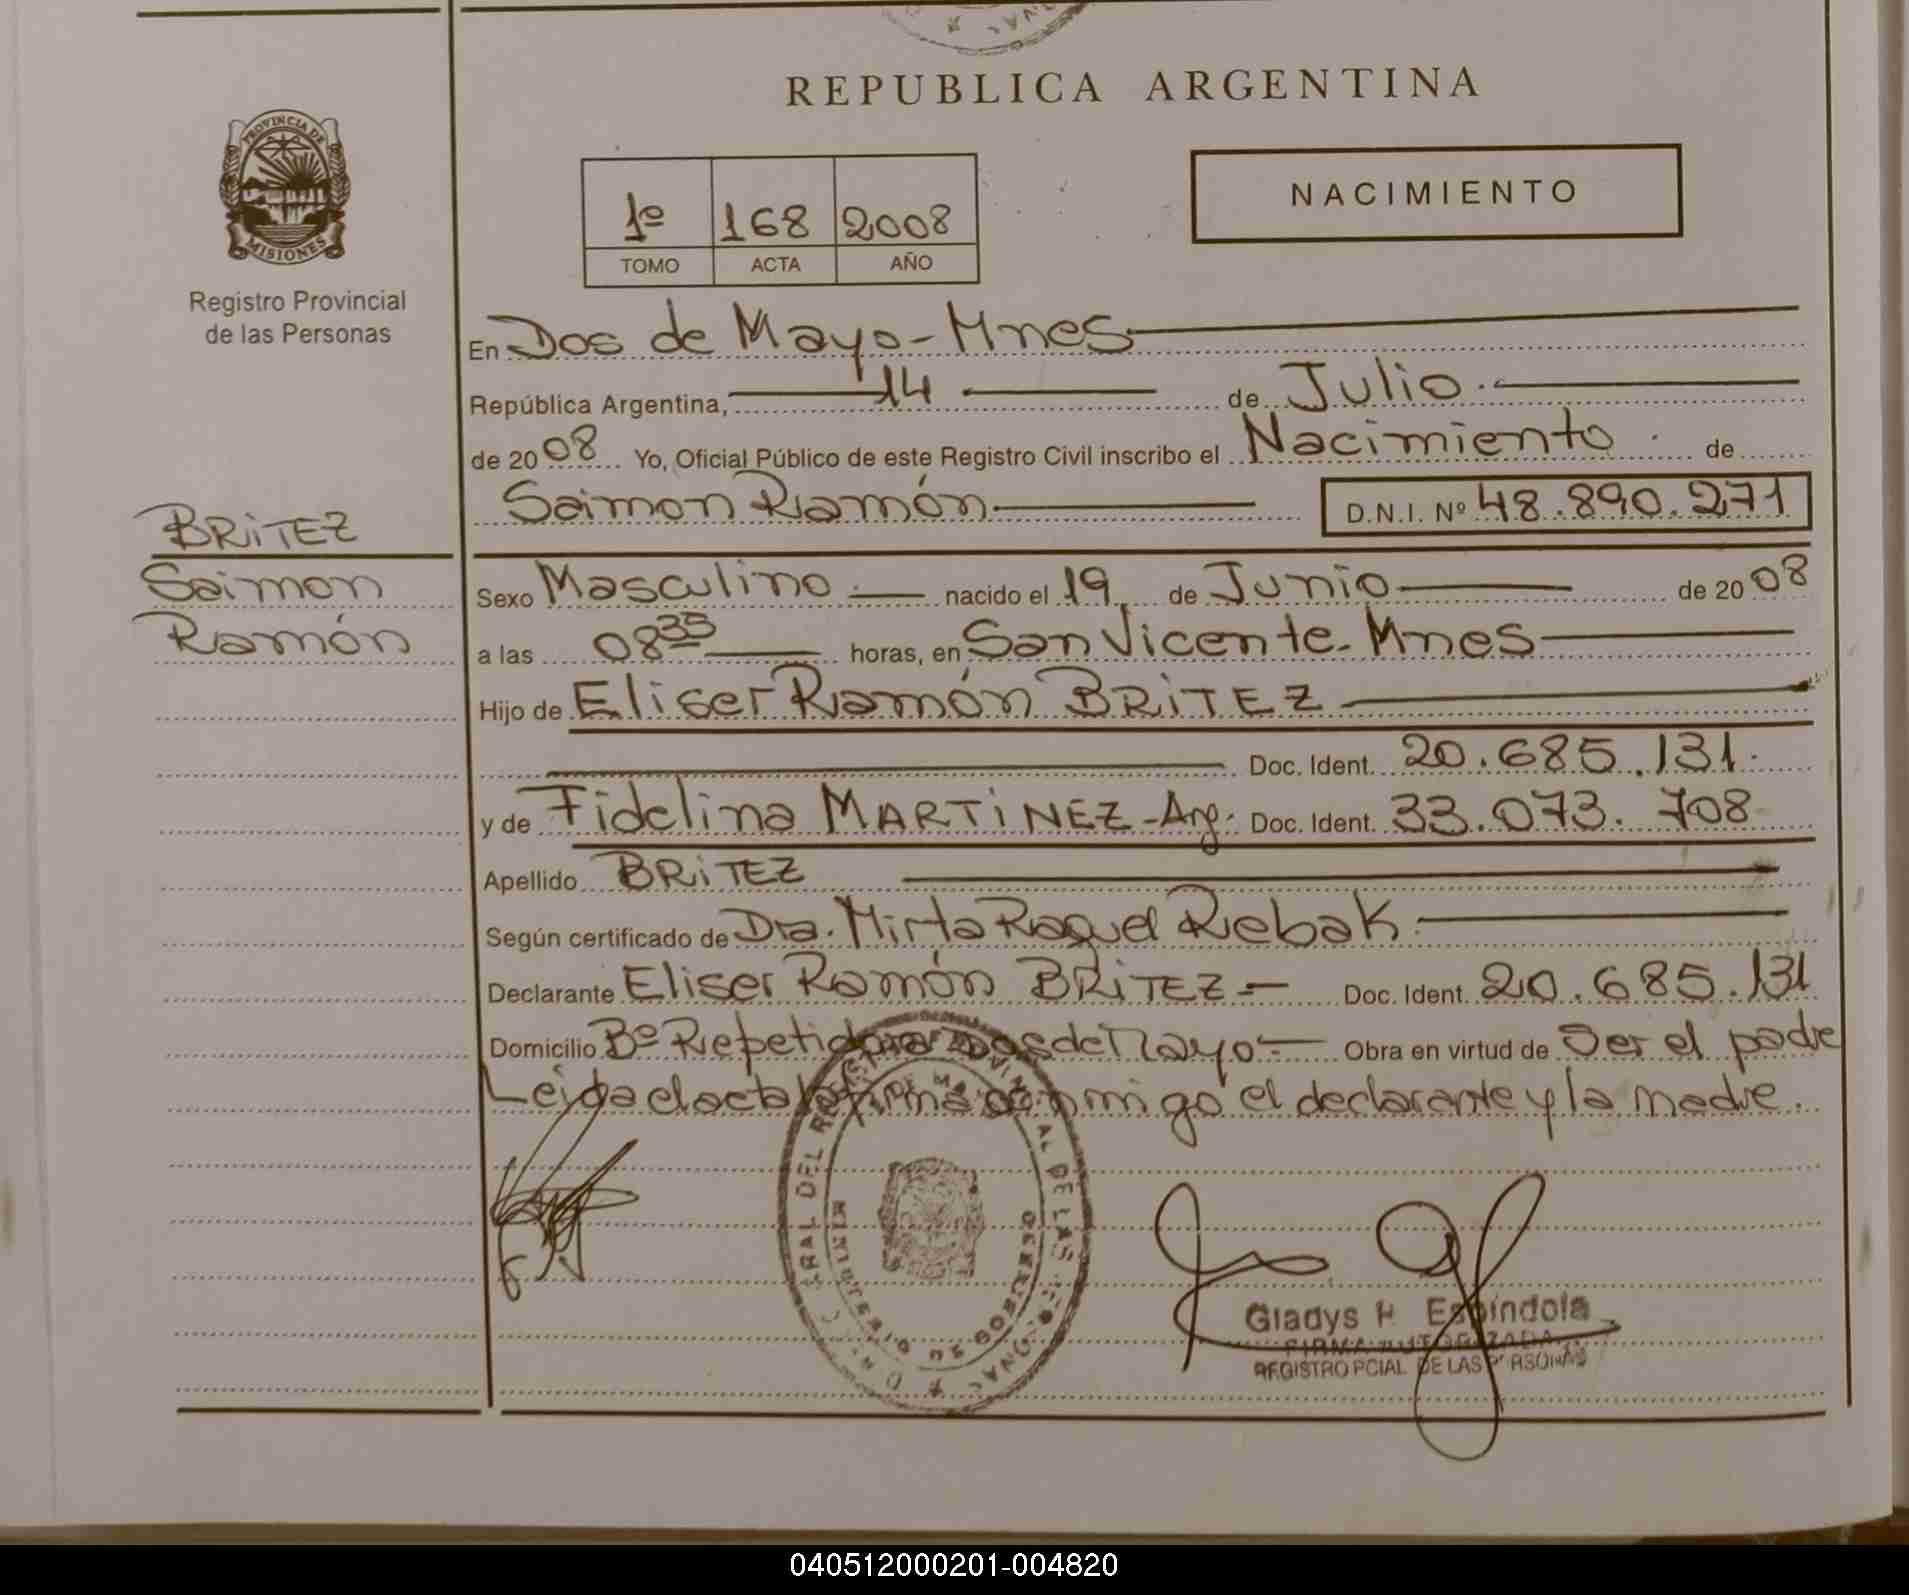 REPUBLICA ARGENTINA
PROVINCIA DE
MISIONES
Registro Provincial
de las Personas
1º 168 2008
TOMO ACTA AÑO
NACIMIENTO
En Dos de Mayo - Mnes
República Argentina, 14 de Julio
de 2008 Yo, Oficial Público de este Registro Civil inscribo el Nacimiento de
Saimon Ramón D.N.I. Nº 48.890.271
BRITEZ
Saimon
Ramón
Sexo Masculino nacido el 19 de Junio de 2008
a las 08 35 horas, en San Vicente - Mnes
Hijo de Eliser Ramón BRITEZ
Doc. Ident. 20.685.131.
y de Fidelina MARTINEZ - Arg. Doc. Ident. 33.073.708
Apellido BRITEZ
Según certificado de Dra. Mirta Raquel Rebak
Declarante Eliser Ramón BRITEZ - Doc. Ident. 20.685.131
Domicilio Bº Repetidora Dos de Mayo - Obra en virtud de Ser el padre
Leida el acta la firma conmigo el declarante y la madre.
Gladys Espíndola
FIRMA AUTORIZADA
REGISTRO PCIAL DE LAS PERSONAS
MINISTERIO DE GOBIERNO
040512000201-004820